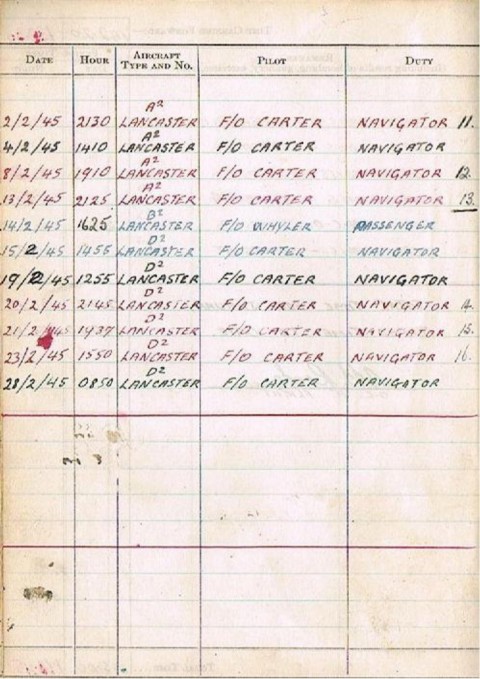 DATE HOUR AIRCRAFT TYPE AND NO. PILOT DUTY
2/2/45 2130 A² LANCASTER F/O CARTER NAVIGATOR 11.
4/2/45 1410 A² LANCASTER F/O CARTER NAVIGATOR
8/2/45 1910 A² LANCASTER F/O CARTER NAVIGATOR 12.
13/2/45 2125 A² LANCASTER F/O CARTER NAVIGATOR 13.
14/2/45 1625 B² LANCASTER F/O WHYLER PASSENGER
15/2/45 1455 D² LANCASTER F/O CARTER NAVIGATOR
19/2/45 1255 D² LANCASTER F/O CARTER NAVIGATOR
20/2/45 2145 D² LANCASTER F/O CARTER NAVIGATOR 14.
21/2/45 1937 D² LANCASTER F/O CARTER NAVIGATOR 15.
23/2/45 1550 D² LANCASTER F/O CARTER NAVIGATOR 16.
28/2/45 0850 D² LANCASTER F/O CARTER NAVIGATOR